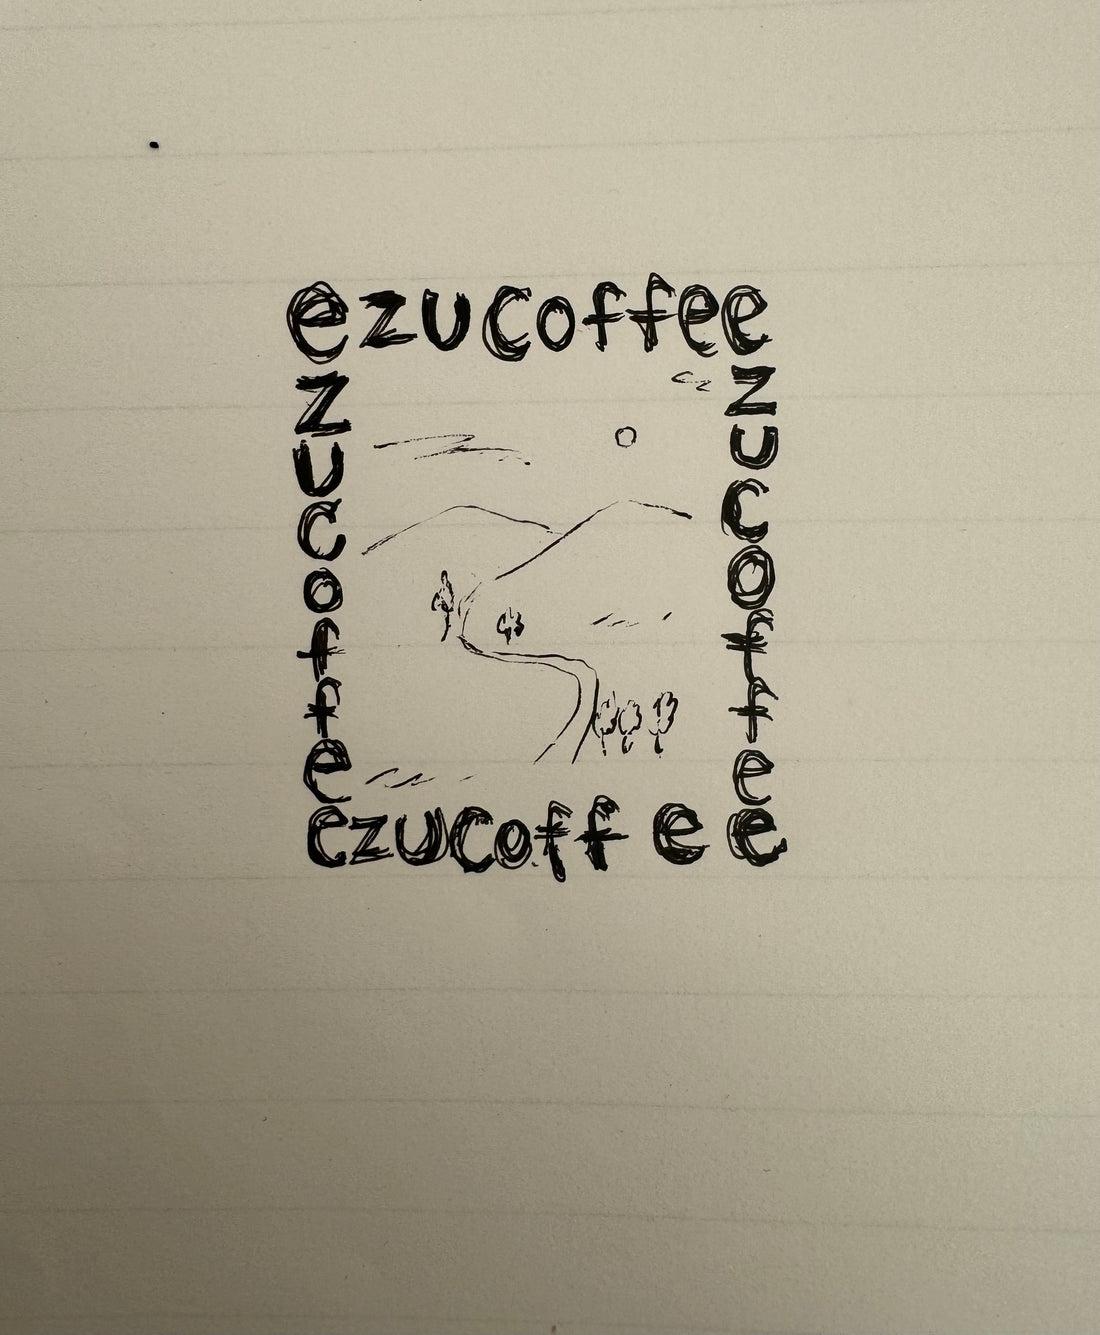 ezucoffee
ezucoffee
ezucoffee
ezucoffee